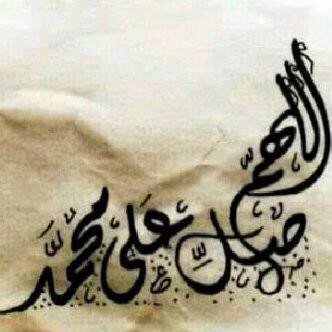 اللهم
صلِّ على محمَّد